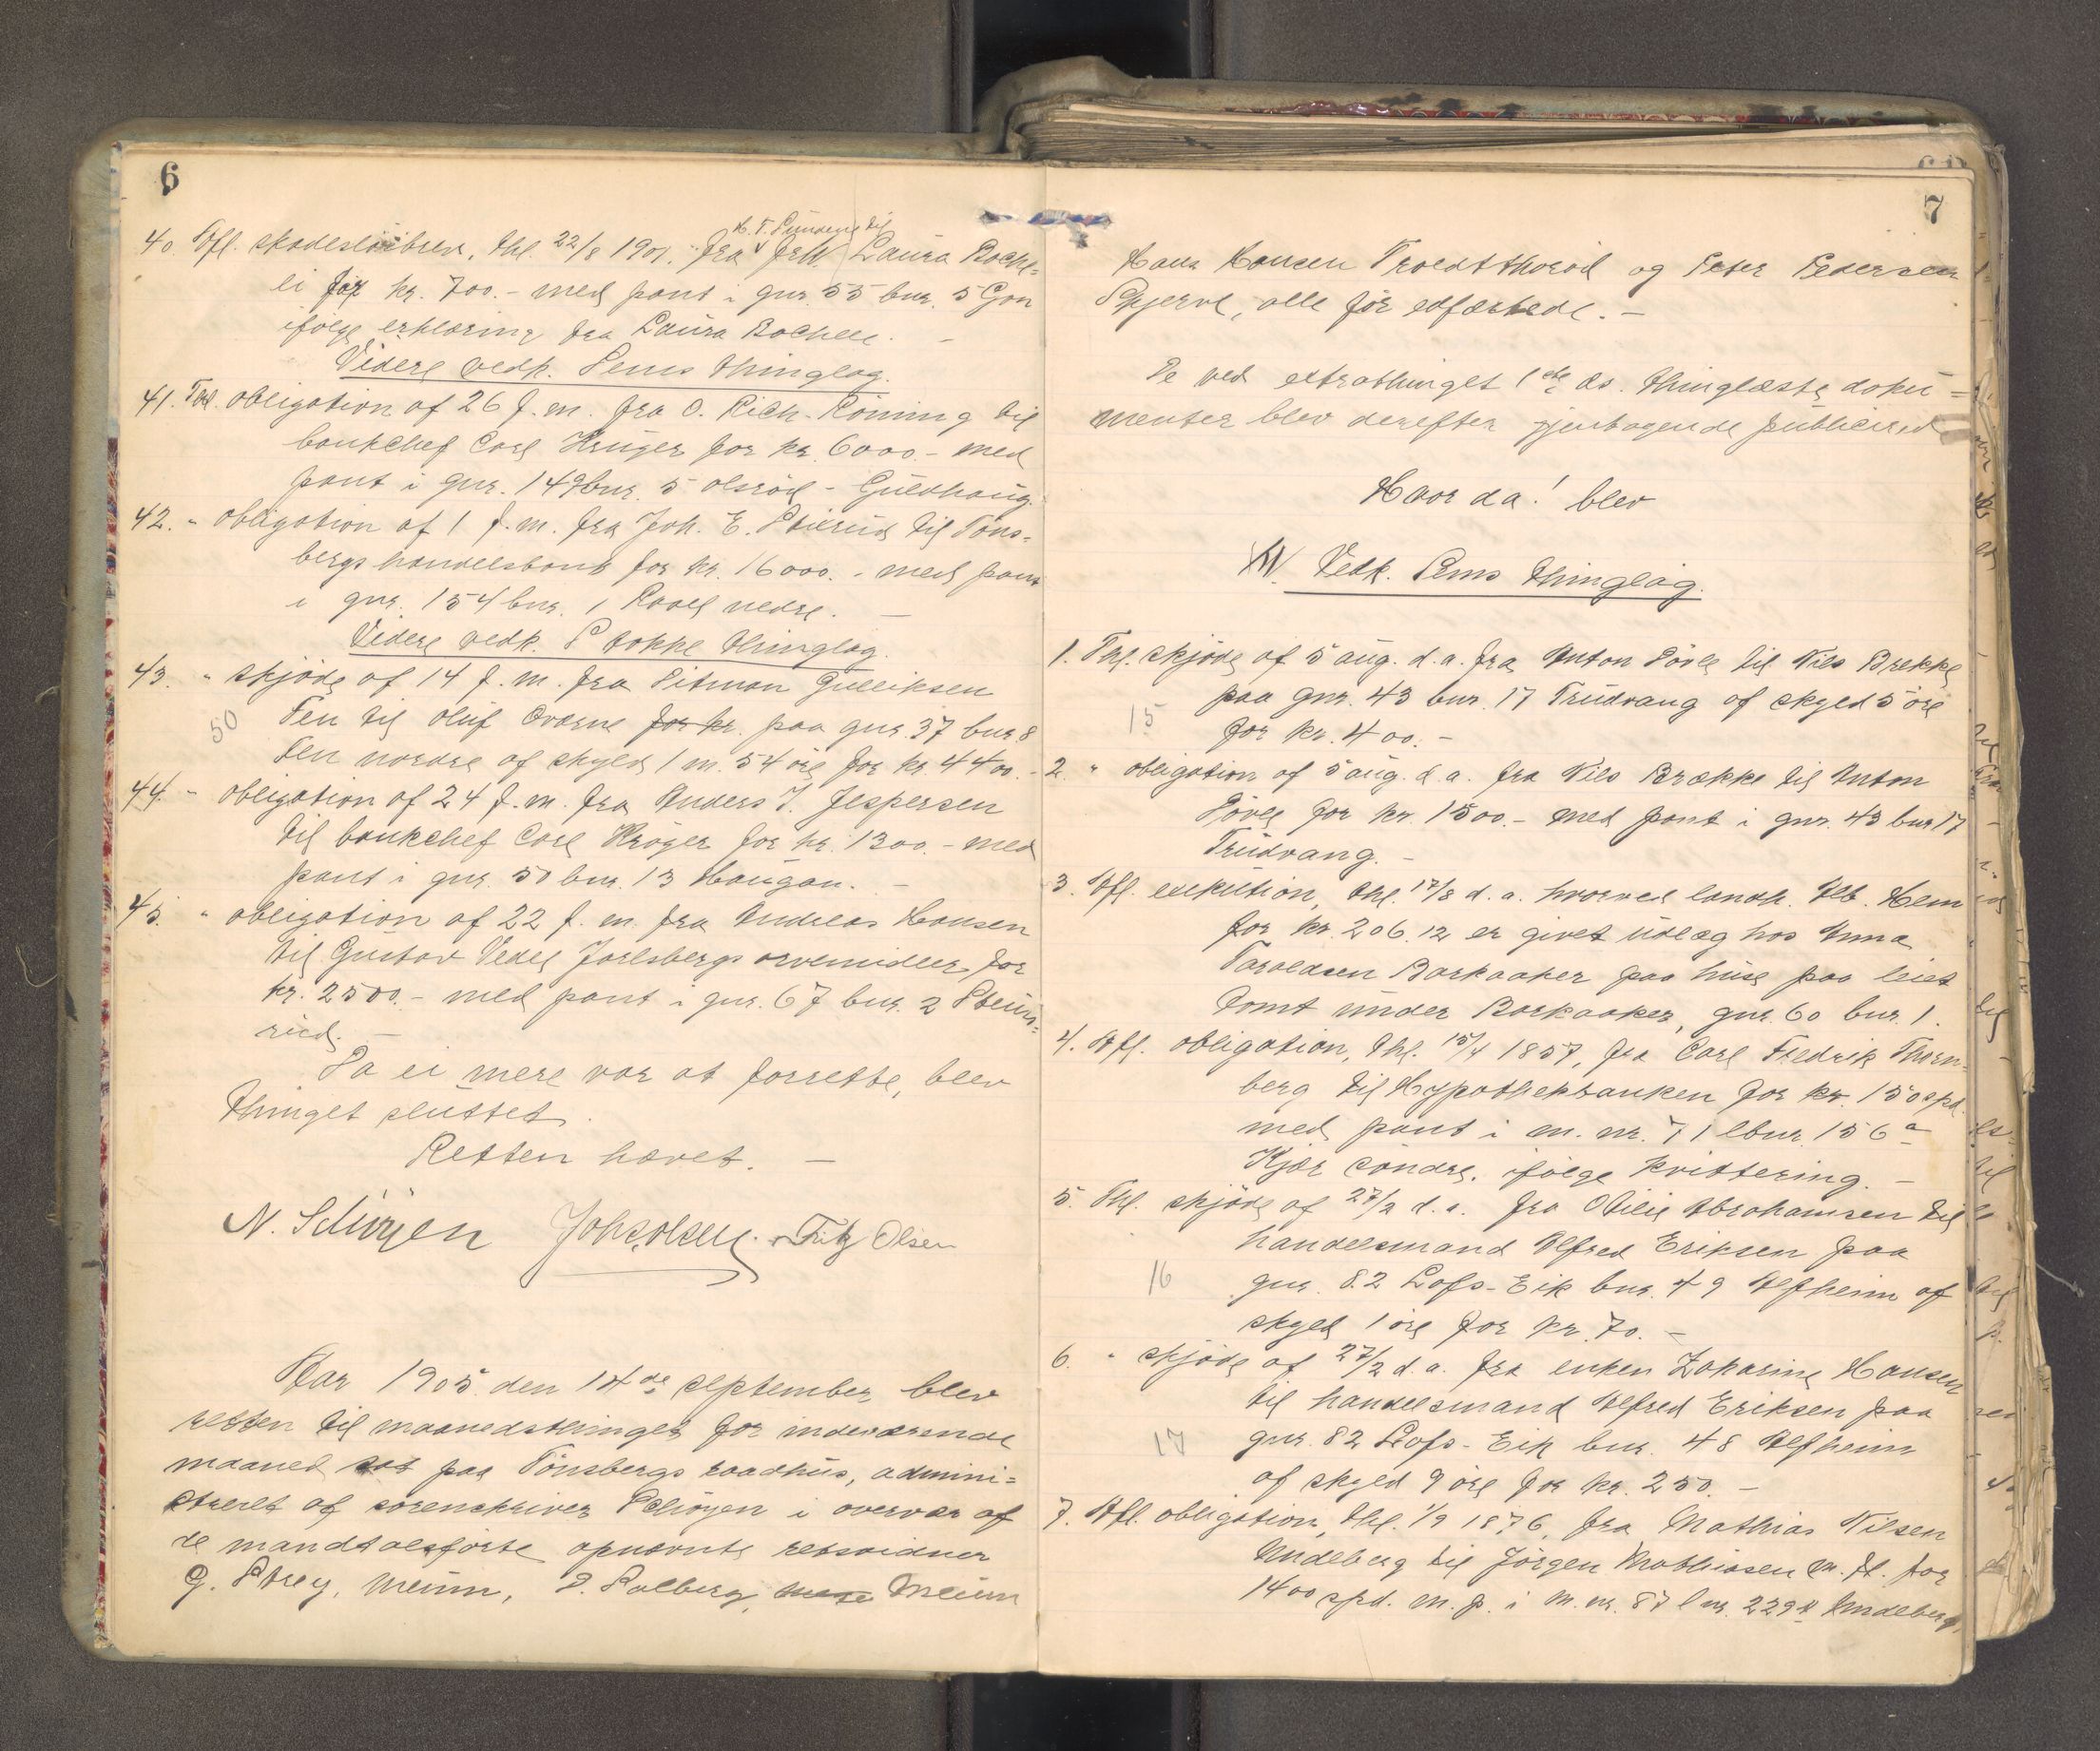 6
40. Afl. skadesløsbrev, thl. 22/8 1901. fra A. T. Sundene til frk. Laura Bache-
li for kr. 700.- med pant i gnr. 55 bnr. 5 Gon
ifölge erklæring fra Laura Bacheli. -
Videre vedk. Sems thinglag.
41. Thl. obligation af 26 f. m. fra O. Rich. Röning til
bankchef Carl Krüger for kr. 6000.- med
pant i gnr. 149 bnr. 5 Olsröd - Guldhaug.
42. " obligation af 1 f. m. fra Joh. E. til Töns-
bergs handelsbank for kr. 16000.- med pant
i gnr. 154 bnr. 1 Ravel nedre. -
Videre vedk. Stokke thinglag.
43. " skjöde af 14 f. m. fra Sitman Gulliksen
50 Fen til Oluf Qværne for kr. paa gnr. 37 bnr. 8
Fen nordre af skyld 1 m. 54 öre for kr. 4400.-
44. " obligation af 24 f. m. fra Anders J. Jespersen
til bankchef Carl Kröger for kr. 1300.- med
pant i gnr. 50 bnr. 13 Haugan. -
45. " obligation af 22 f. m. fra Andreas Hansen
til Gustav Vedel Jarlsbergs arvemidler for
kr. 2500.- med pant i gnr. 67 bnr. 2 Steins-
rud. -
Da ei mere var at forrette, blev
thinget sluttet.
Retten hævet. -
N. Schöyen Johs. Olsen. Fritz Olsen
Aar 1905 den 14de september blev
retten til maanedsthinget for indeværende
maaned sat paa Tönsbergs raadhus, admini-
streret af sorenskriver Schöyen i overvær af
de mandtalsförte opnævnte retsvidner
G. Strey, Meum, S. Solberg, Meum
7
Hans Hansen Troldthoröd og Peter Pedersen
Skjerve, alle för edfæstede. -
De ved extrathinget 1ste ds. thinglæste doku-
menter blev derefter gjentagende publicered
Hvor da! blev
Vedk. Sems thinglag.
1. Thl. skjöde af 5 aug. d. a. fra Anton Sövle til Nils Brekke
paa gnr. 43 bnr. 17 Trudvang af skyld 5 öre
15 for kr. 400.-
2. " obligation af 5 aug. d. a. fra Nils Brække til Anton
Sövle for kr. 1500.- med pant i gnr. 43 bnr 17
Trudvang. -
3. Afl. exekution, thl. 17/8 d. a. hvorved landh. Alb. Hem
for kr. 206.12 er givet udlæg hos Anna
Taraldsen Barkaaker paa huse paa leiet
tomt under Barkaaker, gnr. 60 bnr. 1.
4. Afl. obligation, thl. 15/4 1857, fra Carl Fredrik Thorn-
berg til Hypothekbanken for kr. 150 spd.
med pant i m. nr. 71 lbnr. 156a
Kjær söndre, ifölge kvittering. -
5. Thl. skjöde af 27/2 d. a. fra Otilie Abrahamsen til
handelsmand Alfred Eriksen paa
16 gnr. 82 Lofs-Eik bnr. 49 Alfheim af
skyld 1 öre for kr. 70. -
6. " skjöde af 27/2 d. a. fra enken Zakarine Hansen
til handelsmand Alfred Eriksen paa
17 gnr. 82 Lofs-Eik bnr. 48 Alfheim
af skyld 9 öre for kr. 250. -
7. Afl. obligation, thl. 1/9 1876, fra Mathias Nilsen
Undeberg til Jörgen Mathissen m. fl. for
1400 spd. m. p. i m. nr. 87 lnr. 229 Undeberg,